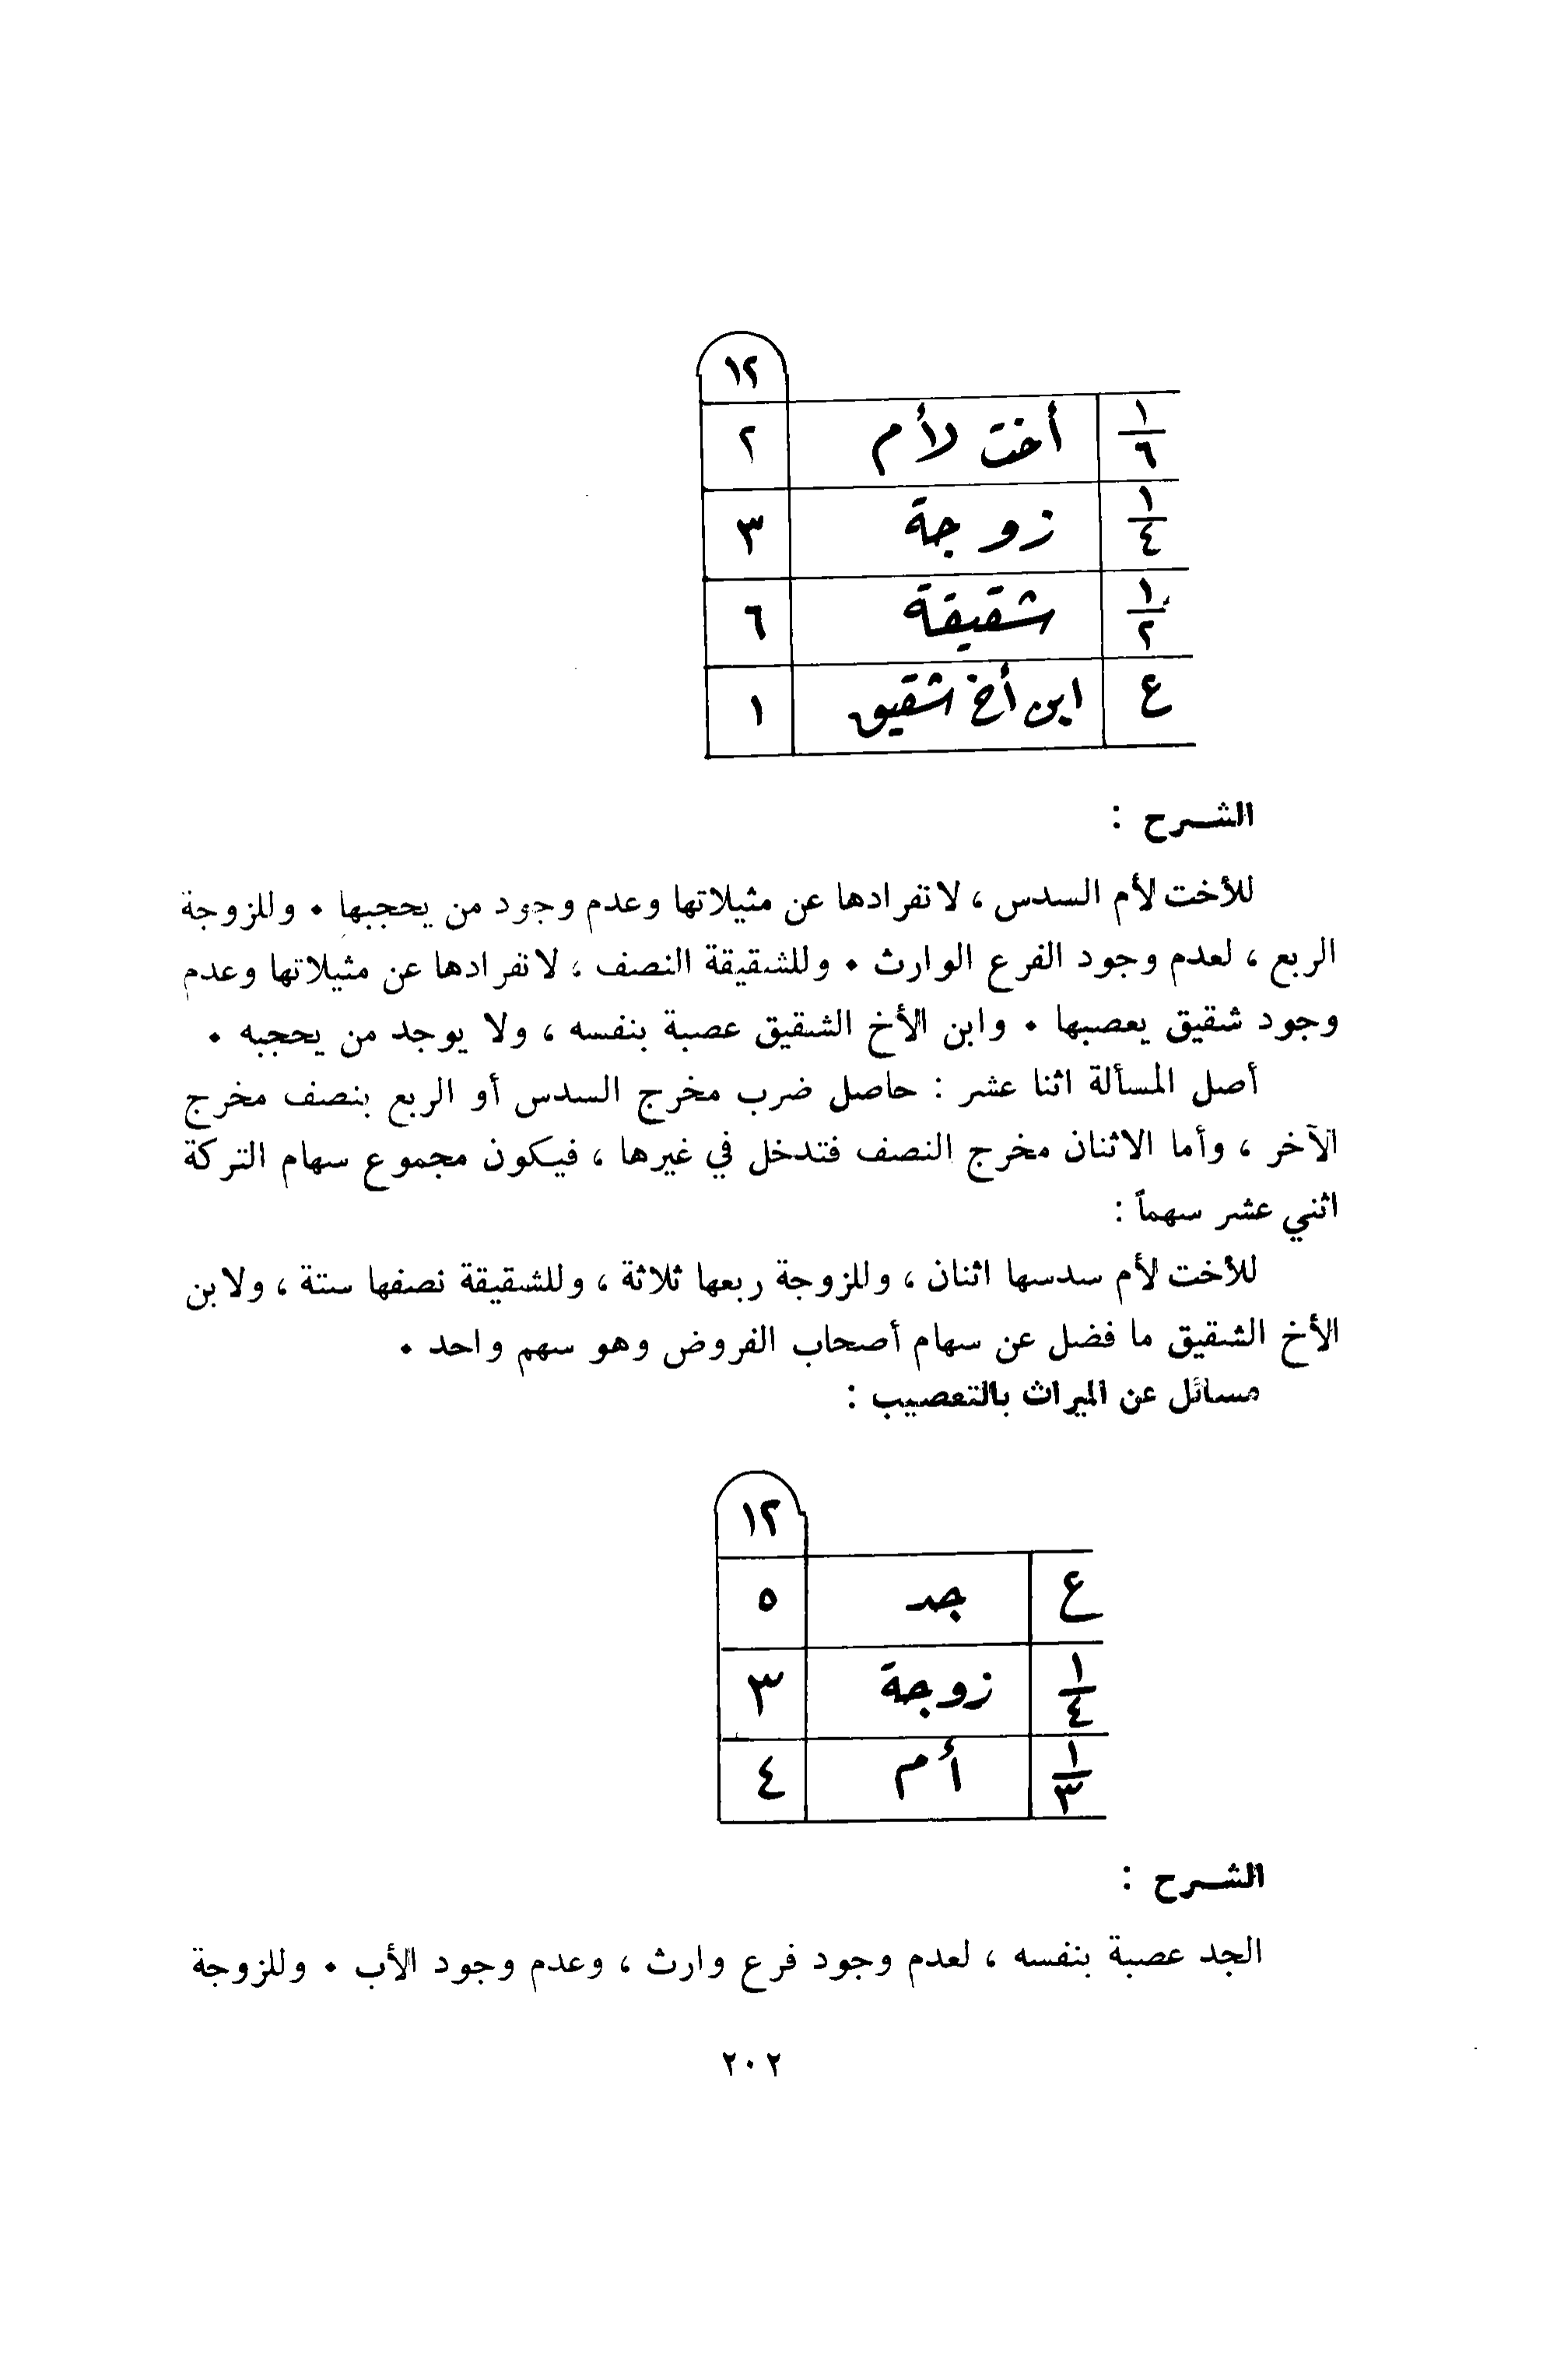 ١٢
١/٦ أخت لأم ٢
١/٤ زوجة ٣
١/٢ شقيقة ٦
ع ابن أخ شقيق ١
الشرح :
للأخت لأم السدس ، لانفرادها عن مثيلاتها وعدم وجود من يحجبها . وللزوجة
الربع ، لعدم وجود الفرع الوارث . وللشقيقة النصف ، لانفرادها عن مثيلاتها وعدم
وجود شقيق يعصبها . وابن الأخ الشقيق عصبة بنفسه ، ولا يوجد من يحجبه .
أصل المسألة اثنا عشر : حاصل ضرب مخرج السدس أو الربع بنصف مخرج
الآخر ، وأما الاثنان مخرج النصف فتدخل في غيرها ، فيكون مجموع سهام التركة
اثني عشر سهماً :
للأخت لأم سدسها اثنان ، وللزوجة ربعها ثلاثة ، وللشقيقة نصفها ستة ، ولابن
الأخ الشقيق ما فضل عن سهام أصحاب الفروض وهو سهم واحد .
مسائل عن الميراث بالتعصيب :
١٢
ع جد ٥
١/٤ زوجة ٣
١/٣ أم ٤
الشرح :
الجد عصبة بنفسه ، لعدم وجود فرع وارث ، وعدم وجود الأب . وللزوجة
٢٠٢